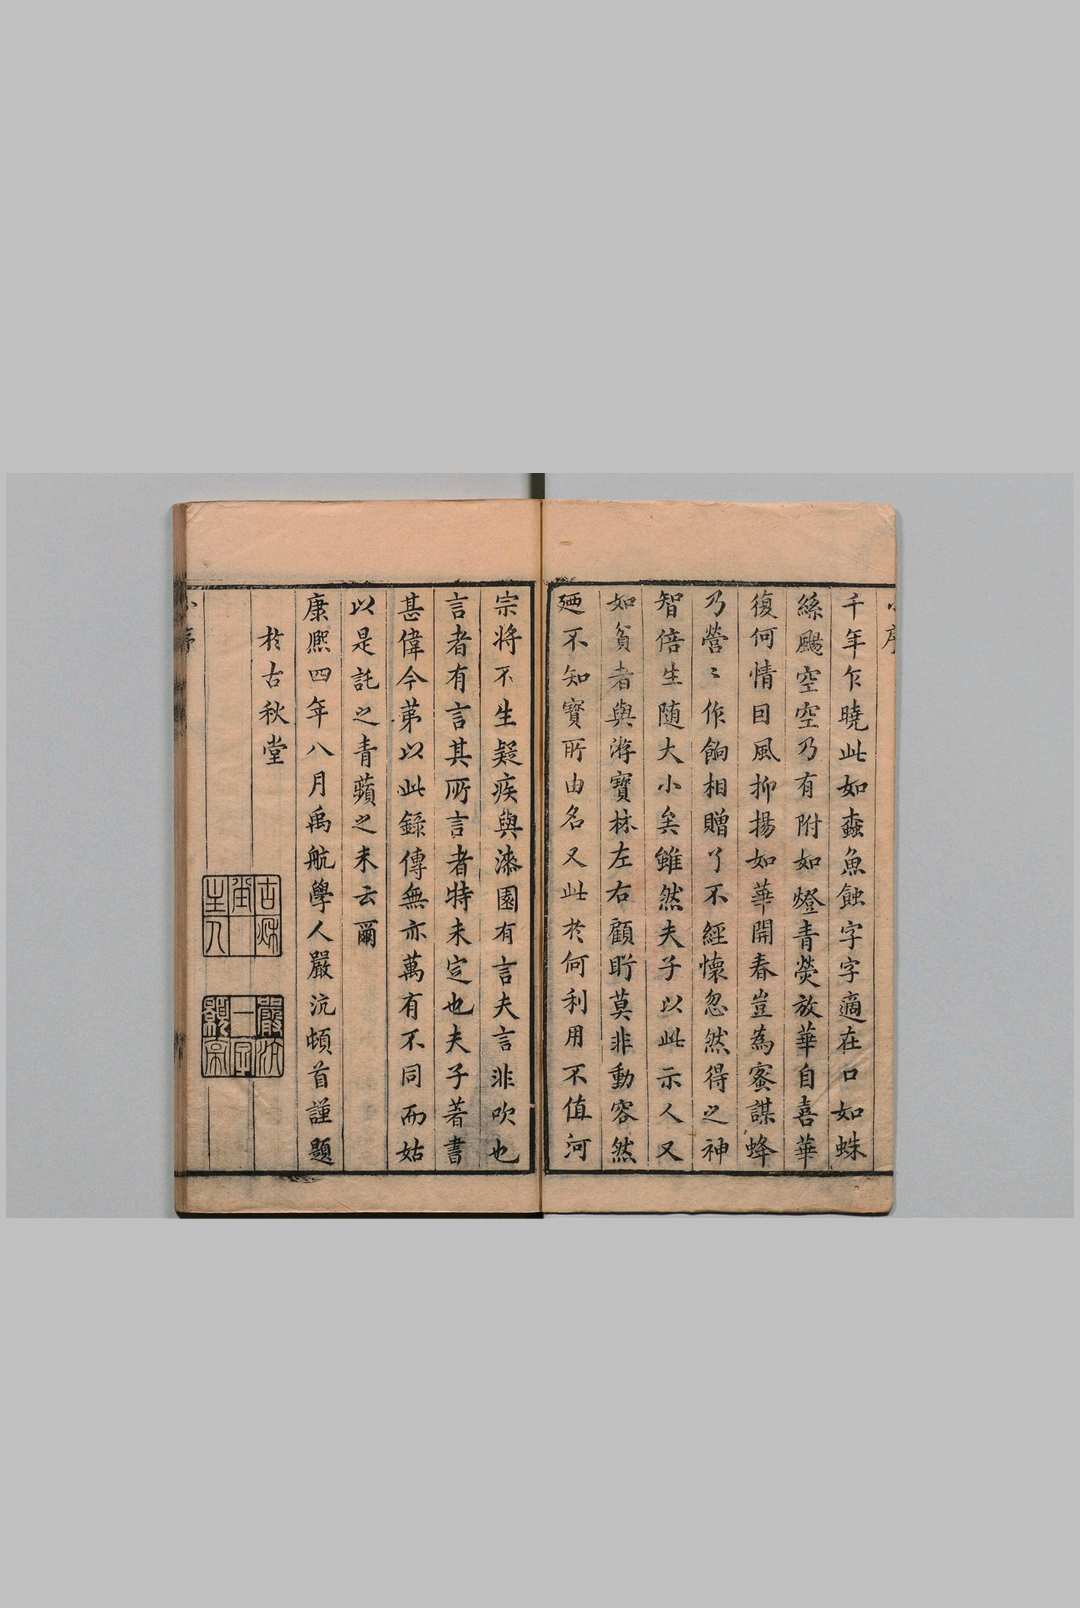 千年乍曉此如蠹魚蝕字字適在口如蛛
絲颺空空乃有附如燈青熒放華自喜華
復何情因風抑揚如華開春豈為蜜謀蜂
乃營〻作餉相贈了不經懷忽然得之神
智倍生随大小矣雖然夫子以此示人又
如貧者與游寶林左右顧盻莫非動容然
廼不知寶所由名又此於何利用不值河
宗將不生疑疾與漆園有言夫言非吹也
言者有言其所言者特未定也夫子著書
甚偉今苐以此錄傳無亦萬有不同而姑
以是託之青蘋之末云爾
康熙四年八月禹航學人嚴沆頓首謹題
於古秋堂
古秋堂主人
嚴沆一字顥亭
小序